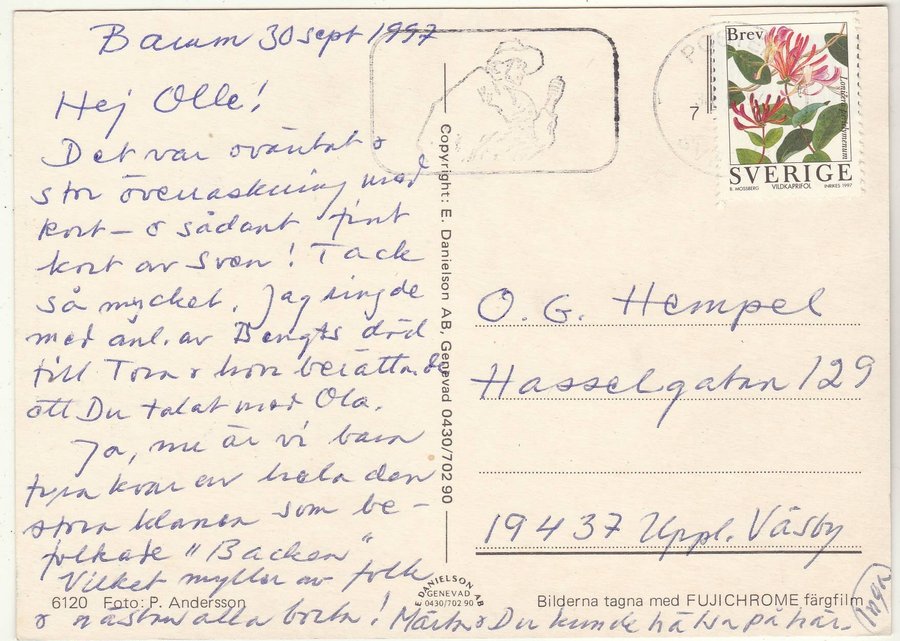 Barum 30 sept 1997
Hej Olle!
Det var oväntat o
stor överraskning med
kort – o sådant fint
kort av Sven! Tack
så mycket. Jag ringde
med anl. av Bengts död
till Tora o hon berättade
att Du talat med Ola.
Ja, nu är vi bara
fyra kvar av hela den
stora klanen som be-
folkade "Backen"
Vilket myller av folk
o nästan alla borta! Märta o Du kunde hälsa på här.
Inga
Copyright: E. Danielson AB, Genevad 0430/702 90
E DANIELSON AB
GENEVAD
0430/702 90
6120 Foto: P. Andersson
Brev
Lonicera periclymenum
SVERIGE
B. MOSSBERG VILDKAPRIFOL INRIKES 1997
7
O. G. Hempel
Hasselgatan 129
194 37 Uppl. Väsby
Bilderna tagna med FUJICHROME färgfilm